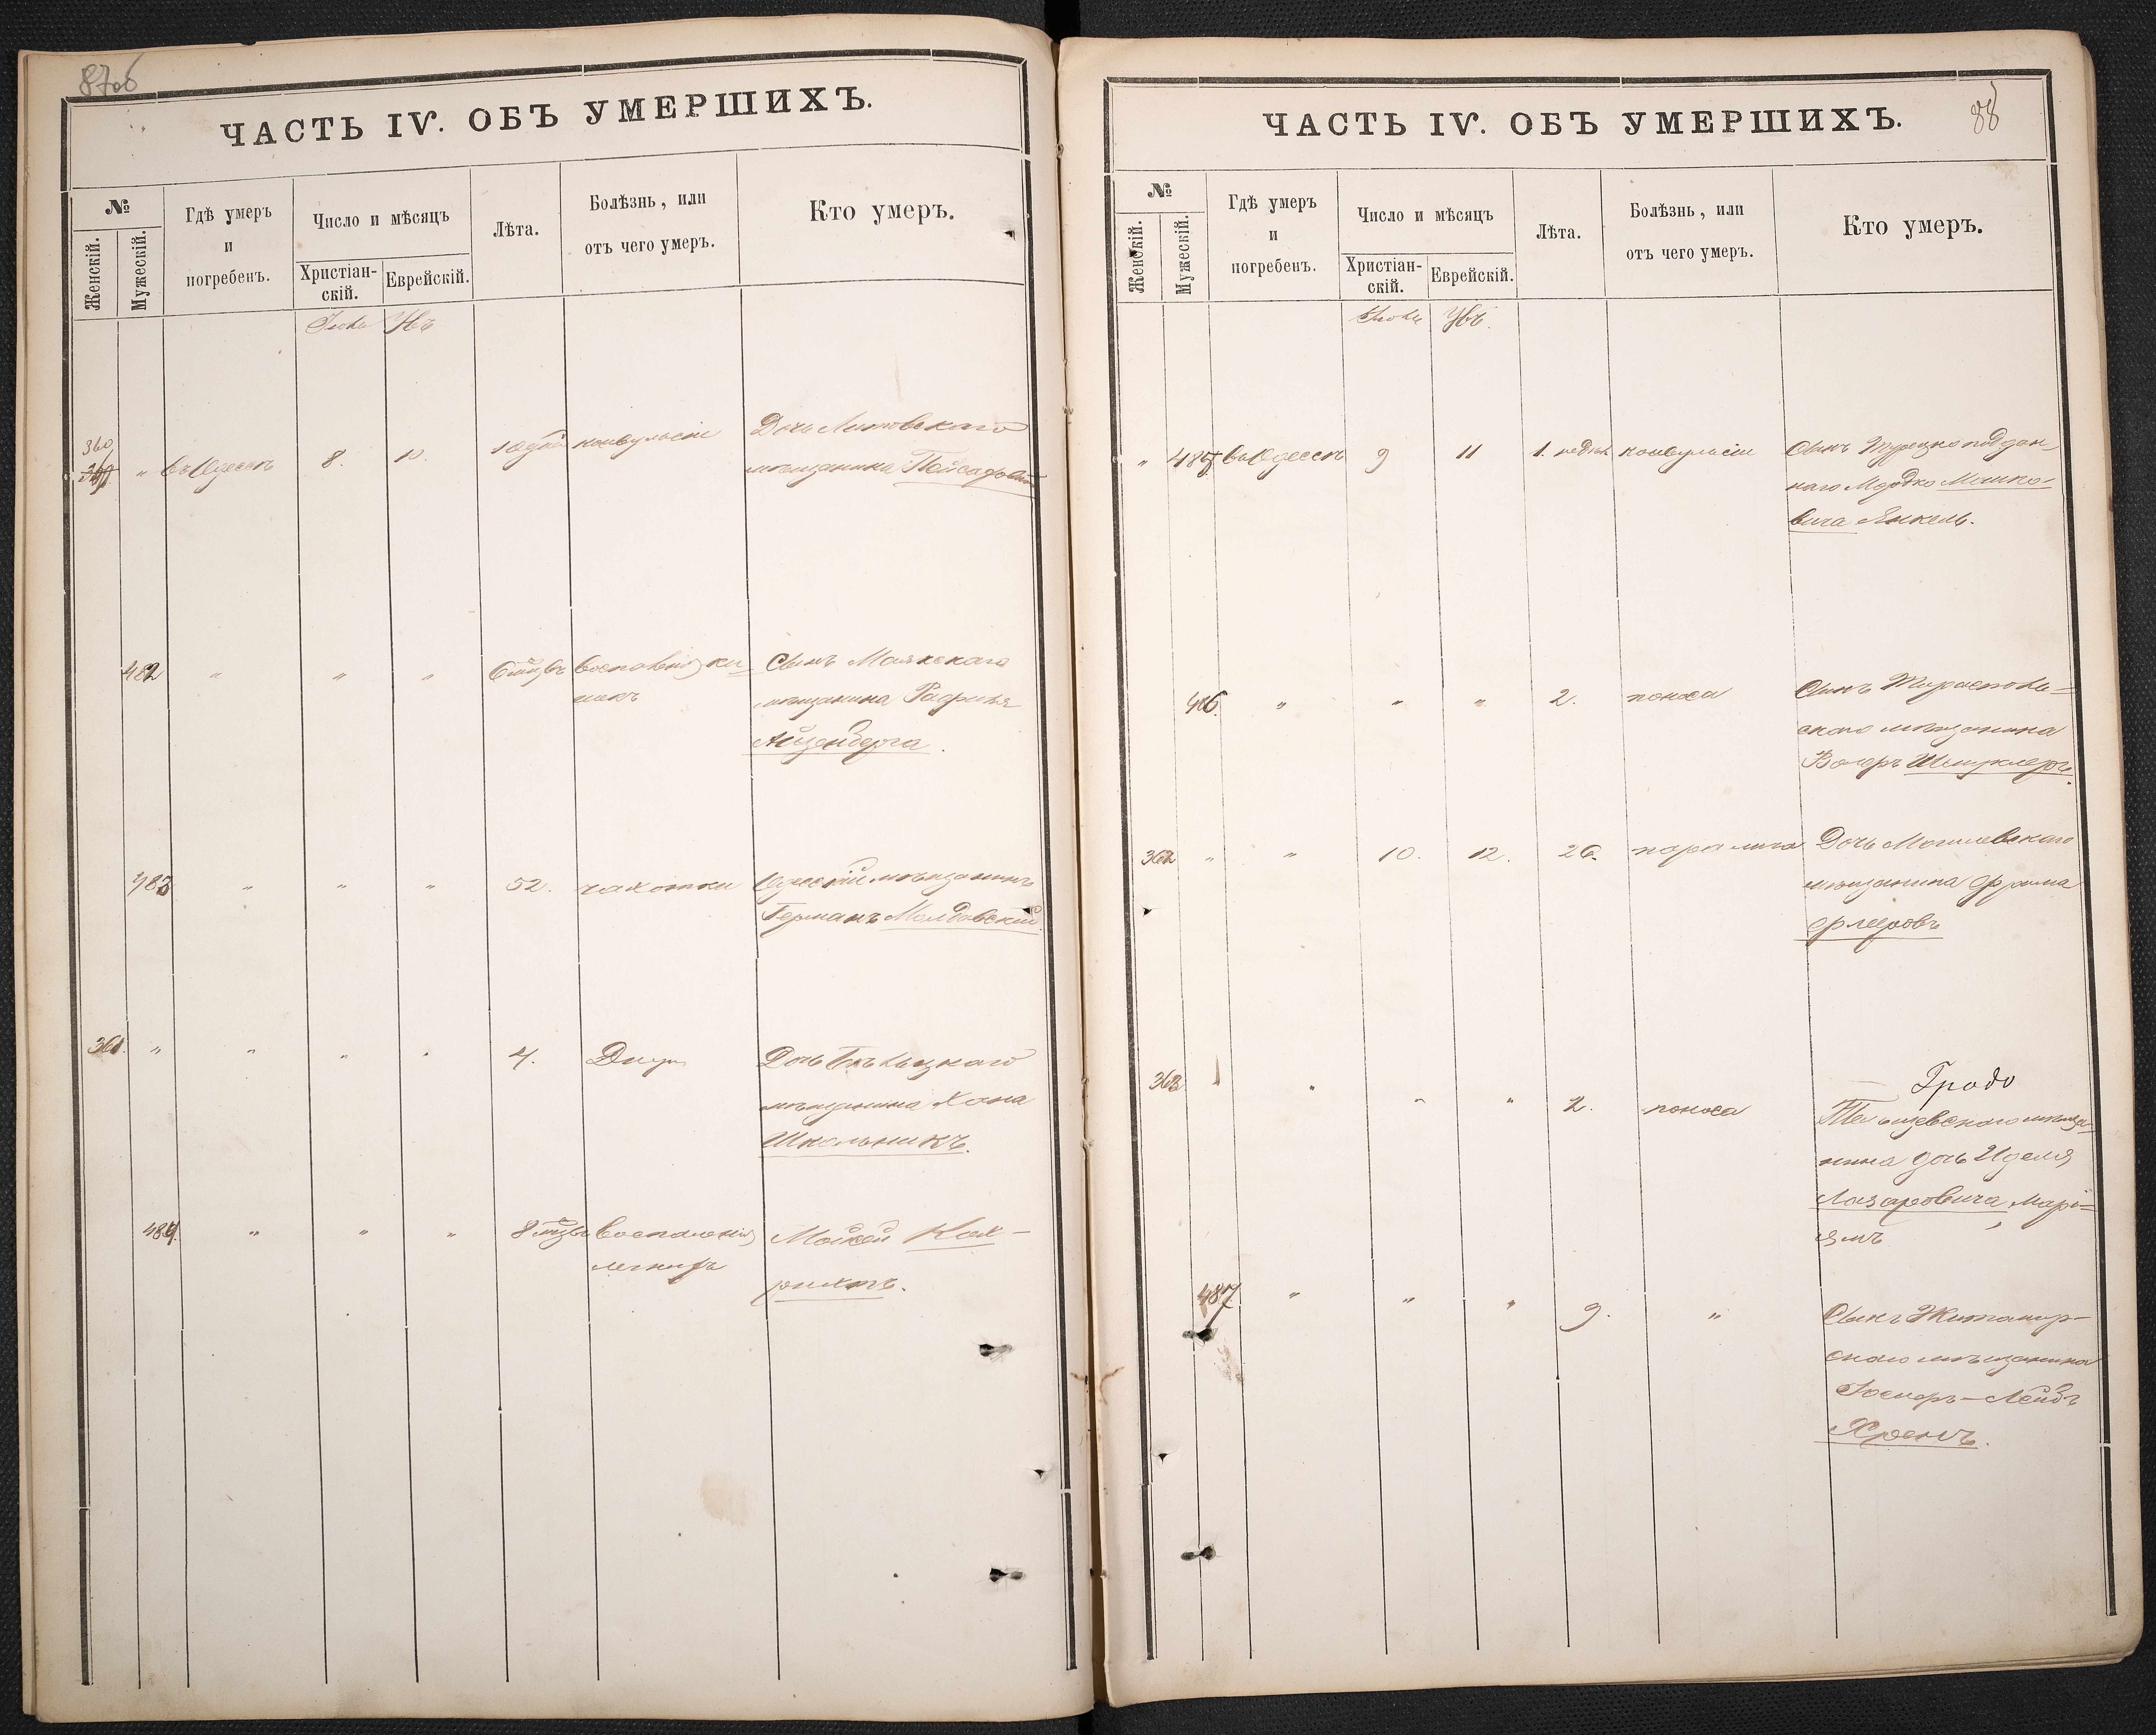 87об
ЧАСТЬ IV. ОБЪ УМЕРШИХЪ.
№
Женскій.
Мужескій.
Гдѣ умеръ
и
погребенъ.
Число и мѣсяцъ
Христіан-
скій.
Еврейскій.
Лѣта.
Болѣзнь, или
отъ чего умеръ.
Кто умеръ.
360 " въ Одессѣ 8. 10. конвульсіи Дочь Литовскаго
мѣщанина
482 " " " воспаленія ки
шекъ
Сынъ Маякскаго
мѣщанина
Айзенберга.
483 " " " 52. чахотки Одесскій мѣщанинъ
Германъ Молдавскій.
361. " " " " 4. Дочь
мѣщанина Хона
Школьникъ.
484. " " " воспаленія
легкихъ
Мойсей Кох-
рихтъ.
88
ЧАСТЬ IV. ОБЪ УМЕРШИХЪ.
№
Женскій.
Мужескій.
Гдѣ умеръ
и
погребенъ.
Число и мѣсяцъ
Христіан-
скій.
Еврейскій.
Лѣта.
Болѣзнь, или
отъ чего умеръ.
Кто умеръ.
" 485 въ Одессѣ 9 11 1. недѣл. конвульсіи Сынъ Турецко поддан-
наго Мордко Мошко-
вича Янкель.
486. " " " 2. поноса Сынъ Тирасполь-
скаго мѣщанина
362 " " 10. 12. 26. паралича Дочь Могилевскаго
мѣщанина Фроима
363 " " " 2. поноса Гродо
Тельшевскаго мѣща-
нина дочь Иделя
Лазаровича Марі-
ямъ
487 " " " 9. " Сынъ Житомир-
скаго мѣщанина
Іосифъ-Лейбъ
Хренъ.